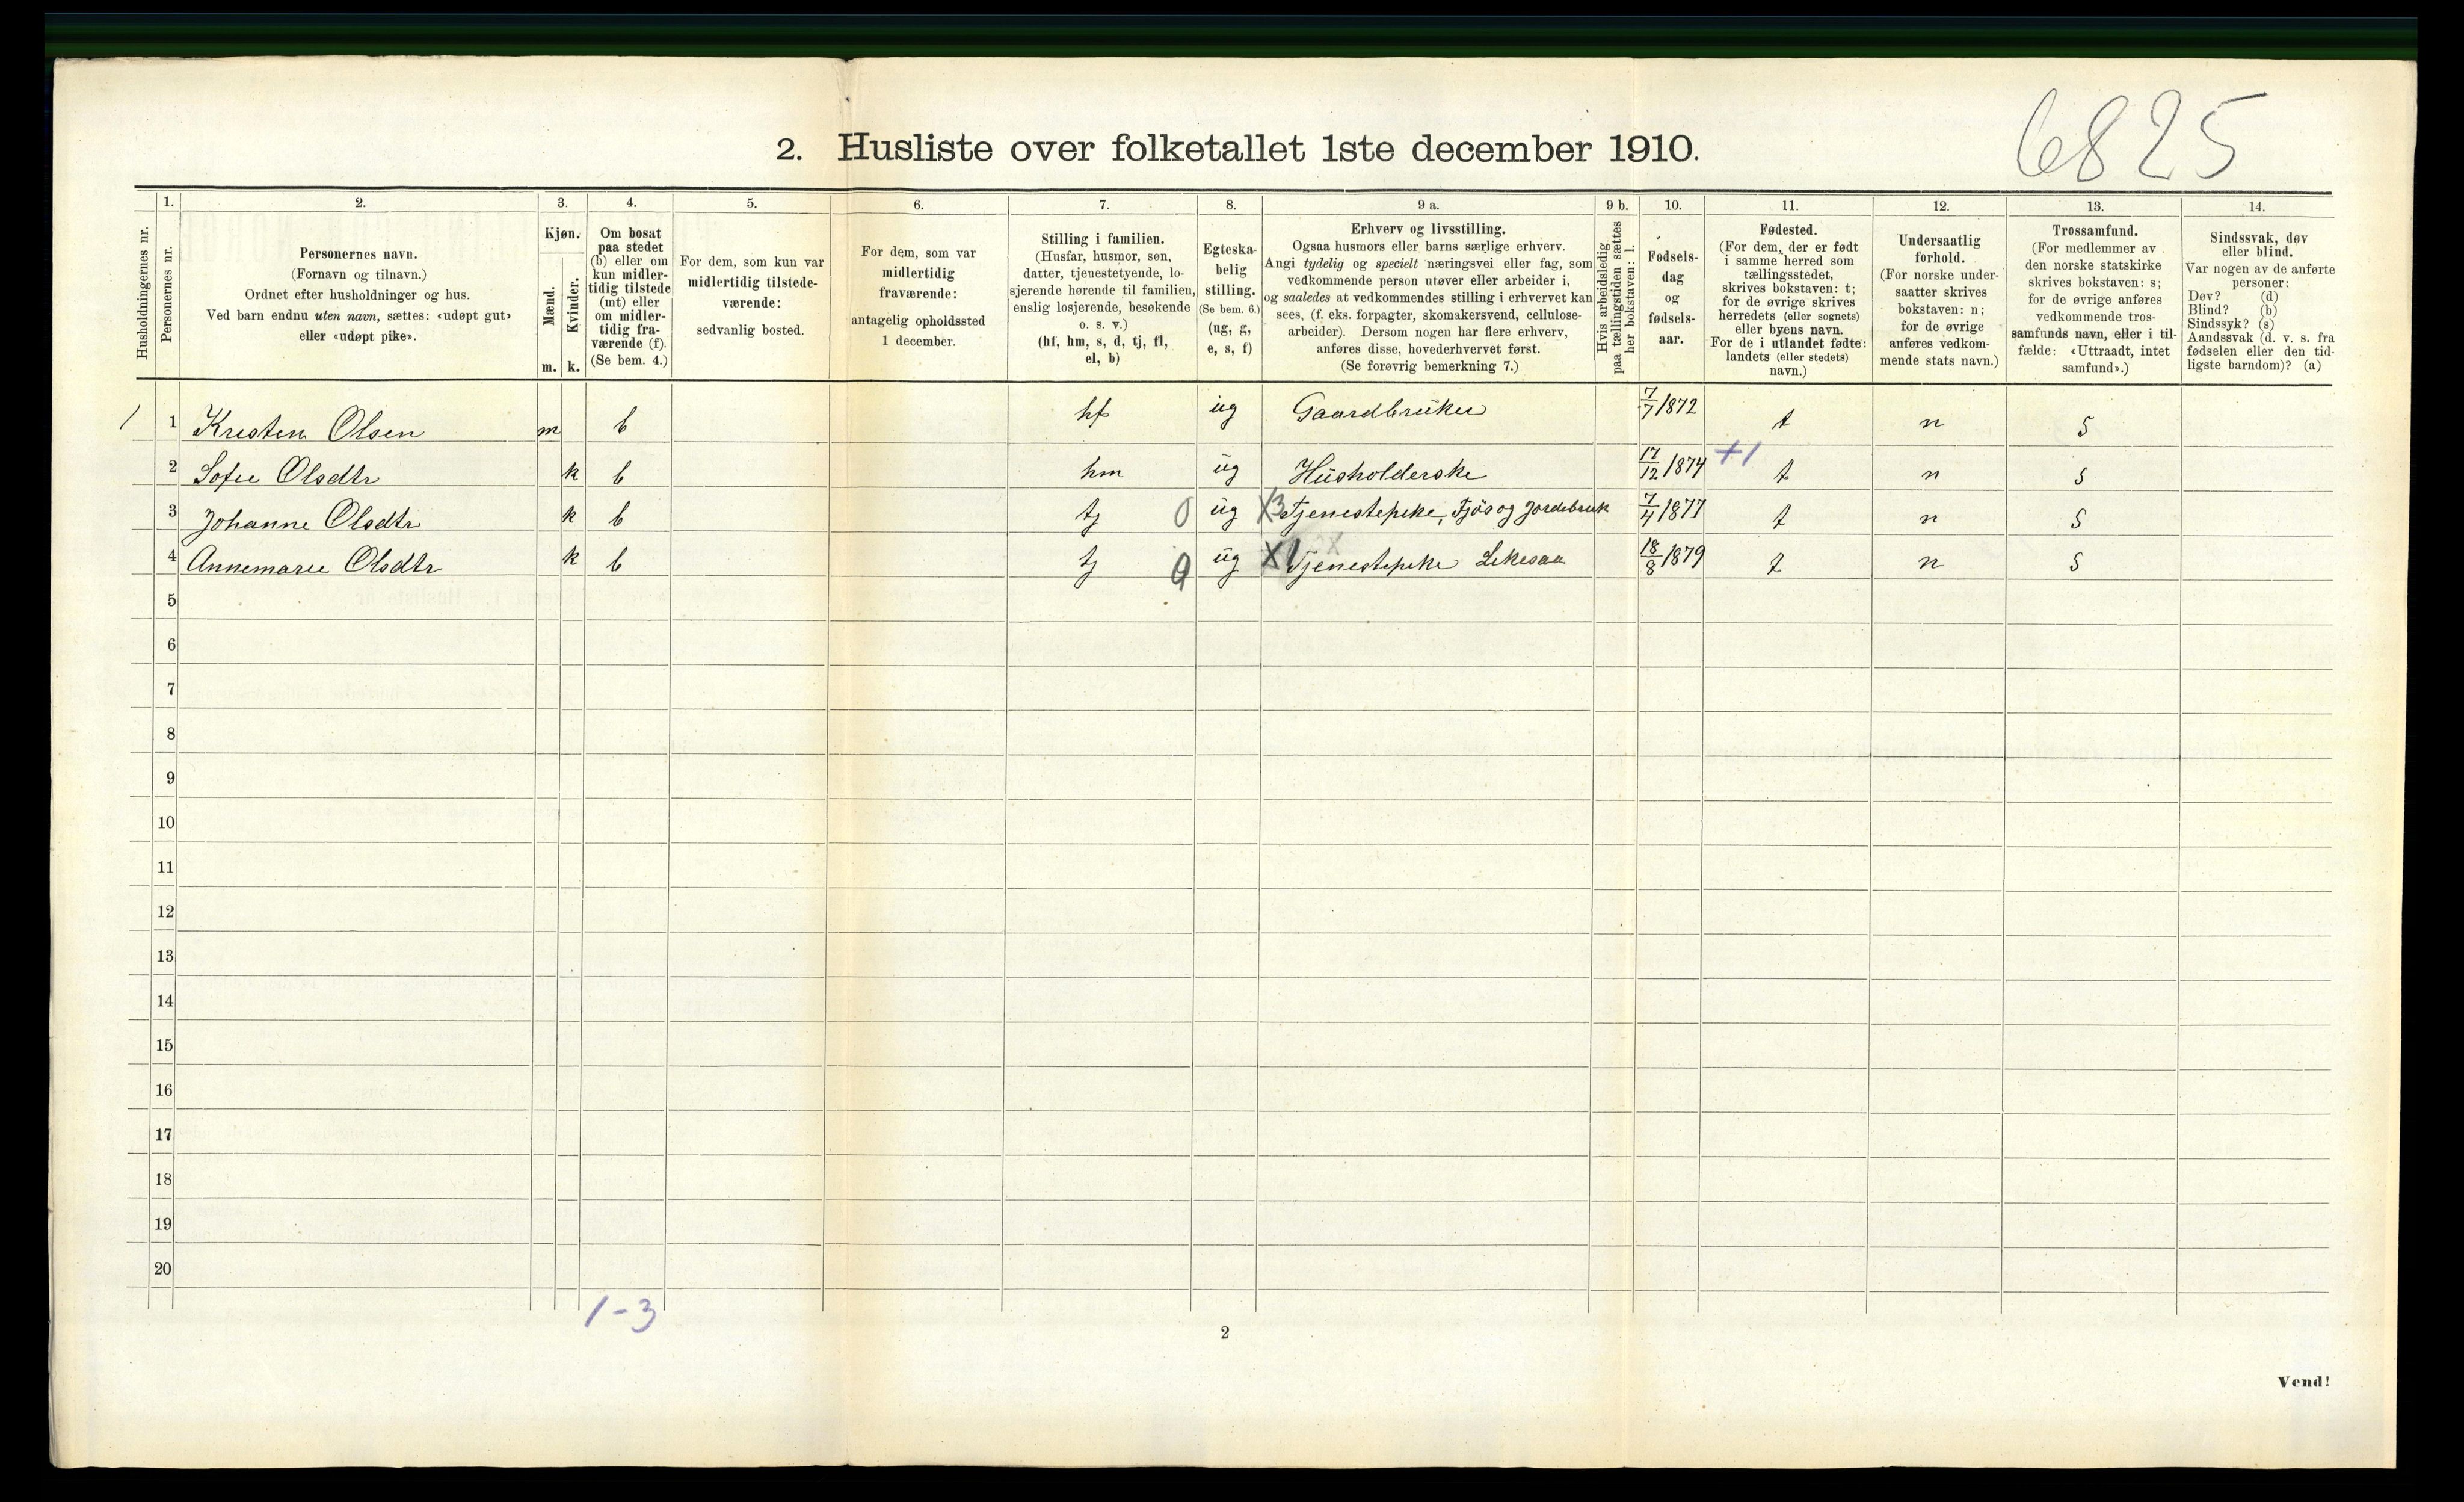 6825
2. Husliste over folketallet 1ste december 1910.
1. 2. 3. 4. 5. 6. 7. 8. 9 a. 9 b. 10. 11. 12. 13. 14.
Husholdningernes nr.
Personernes nr.
Personernes navn.
(Fornavn og tilnavn.)
Ordnet efter husholdninger og hus.
Ved barn endnu uten navn, sættes: «udøpt gut»
eller «udøpt pike».
Kjøn.
Mænd.
Kvinder.
m. k.
Om bosat
paa stedet
(b) eller om
kun midler-
tidig tilstede
(mt) eller
om midler-
tidig fra-
værende (f).
(Se bem. 4.)
For dem, som kun var
midlertidig tilstede-
værende:
sedvanlig bosted.
For dem, som var
midlertidig
fraværende:
antagelig opholdssted
1 december.
Stilling i familien.
(Husfar, husmor, søn,
datter, tjenestetyende, lo-
sjerende hørende til familien,
enslig losjerende, besøkende
o. s. v.)
(hf, hm, s, d, tj, fl,
el, b)
Egteska-
belig
stilling.
(Se bem. 6.)
(ug, g,
e, s, f)
Erhverv og livsstilling.
Ogsaa husmors eller barns særlige erhverv.
Angi tydelig og specielt næringsvei eller fag, som
vedkommende person utøver eller arbeider i,
og saaledes at vedkommendes stilling i erhvervet kan
sees, (f. eks. forpagter, skomakersvend, cellulose-
arbeider). Dersom nogen har flere erhverv,
anføres disse, hovederhvervet først.
(Se forøvrig bemerkning 7.)
Hvis arbeidsledig
paa tællingstiden sættes
her bokstaven: l.
Fødsels-
dag
og
fødsels-
aar.
Fødested.
(For dem, der er født
i samme herred som
tællingsstedet,
skrives bokstaven: t;
for de øvrige skrives
herredets (eller sognets)
eller byens navn.
For de i utlandet fødte:
landets (eller stedets)
navn.)
Undersaatlig
forhold.
(For norske under-
saatter skrives
bokstaven: n;
for de øvrige
anføres vedkom-
mende stats navn.)
Trossamfund.
(For medlemmer av
den norske statskirke
skrives bokstaven: s;
for de øvrige anføres
vedkommende tros-
samfunds navn, eller i til-
fælde: «Uttraadt, intet
samfund».)
Sindssvak, døv
eller blind.
Var nogen av de anførte
personer:
Døv? (d)
Blind? (b)
Sindssyk? (s)
Aandssvak (d. v. s. fra
fødselen eller den tid-
ligste barndom)? (a)
1 1 Kristen Olsen m b hf ug Gaardbruker 7/7 1872 t n s
2 Sofie Olsdtr k b hm ug Husholderske 17/12 1874 +1 t n s
3 Johanne Olsdtr k b tj 0 ug X3 Tjenestepike, Fjös og Jordebruk 7/4 1877 t n s
4 Annemarie Olsdtr k b tj 0 ug X1 Tjenestepike 18/8 1879 t n s
5
6
7
8
9
10
11
12
13
14
15
16
17
18
19
20
1-3
2
Vend!